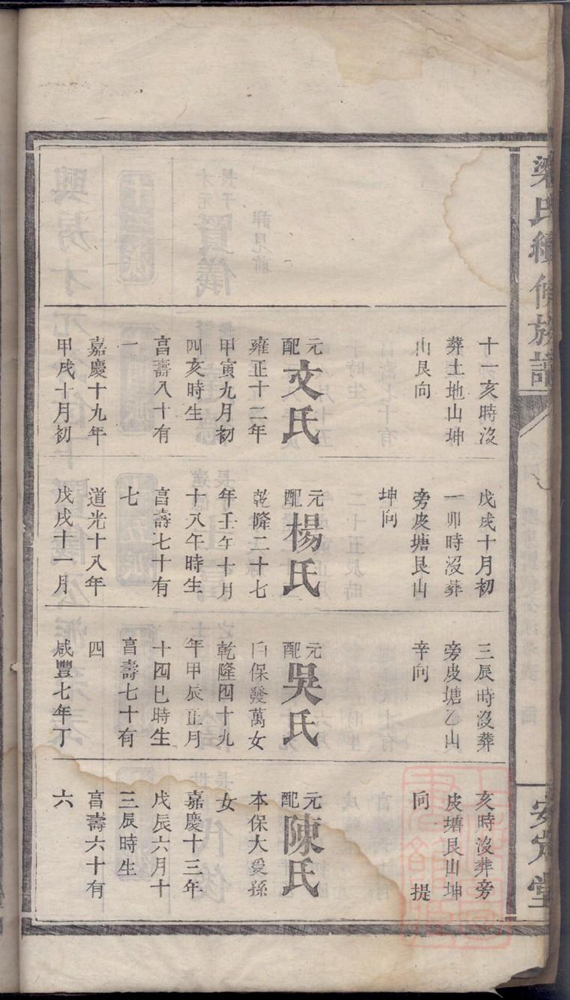 梁氏續修族譜
安定堂
十一亥時沒
葬土地山坤
山艮向
元配文氏
雍正十二年
甲寅九月初
四亥時生
亯壽八十有
一
嘉慶十九年
甲戌十月初
戊戌十月初
一卯時沒葬
旁皮塘艮山
坤向
元配楊氏
乾隆二十七
年壬午十月
十八午時生
亯壽七十有
七
道光十八年
戊戌十一月
三辰時沒葬
旁皮塘乙山
辛向
元配吳氏
保發萬女
乾隆四十九
年甲辰正月
十四巳時生
亯壽七十有
四
咸豐七年丁
亥時沒葬旁
皮塘艮山坤
向 提
元配陳氏
本保大愛孫
女
嘉慶十三年
戊辰六月十
三辰時生
亯壽六十有
六